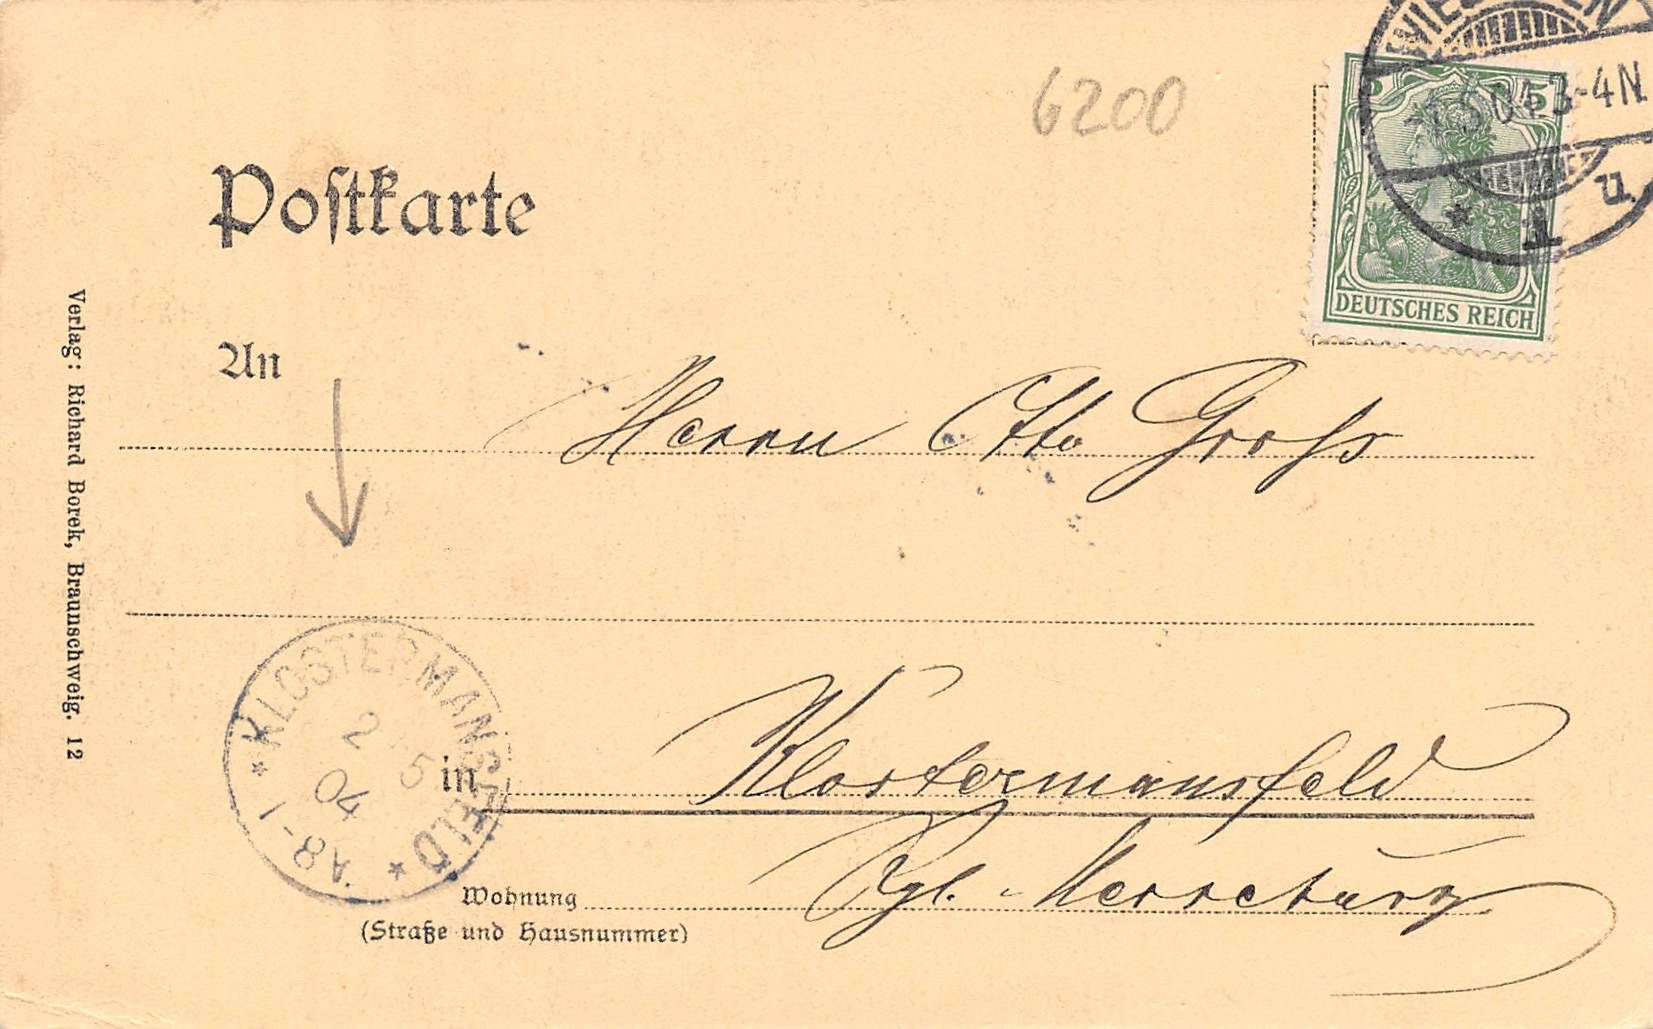 6200
WIESBADEN
5
3-4N.
* 1 u
DEUTSCHES REICH
Postkarte
An
Herrn Otto Groß
Verlag: Richard Borek, Braunschweig. 12
in Klostermansfeld
* KLOSTERMANSFELD *
2 5
04
A8-1
Bez. Merseburg
Wohnung
(Straße und Hausnummer)